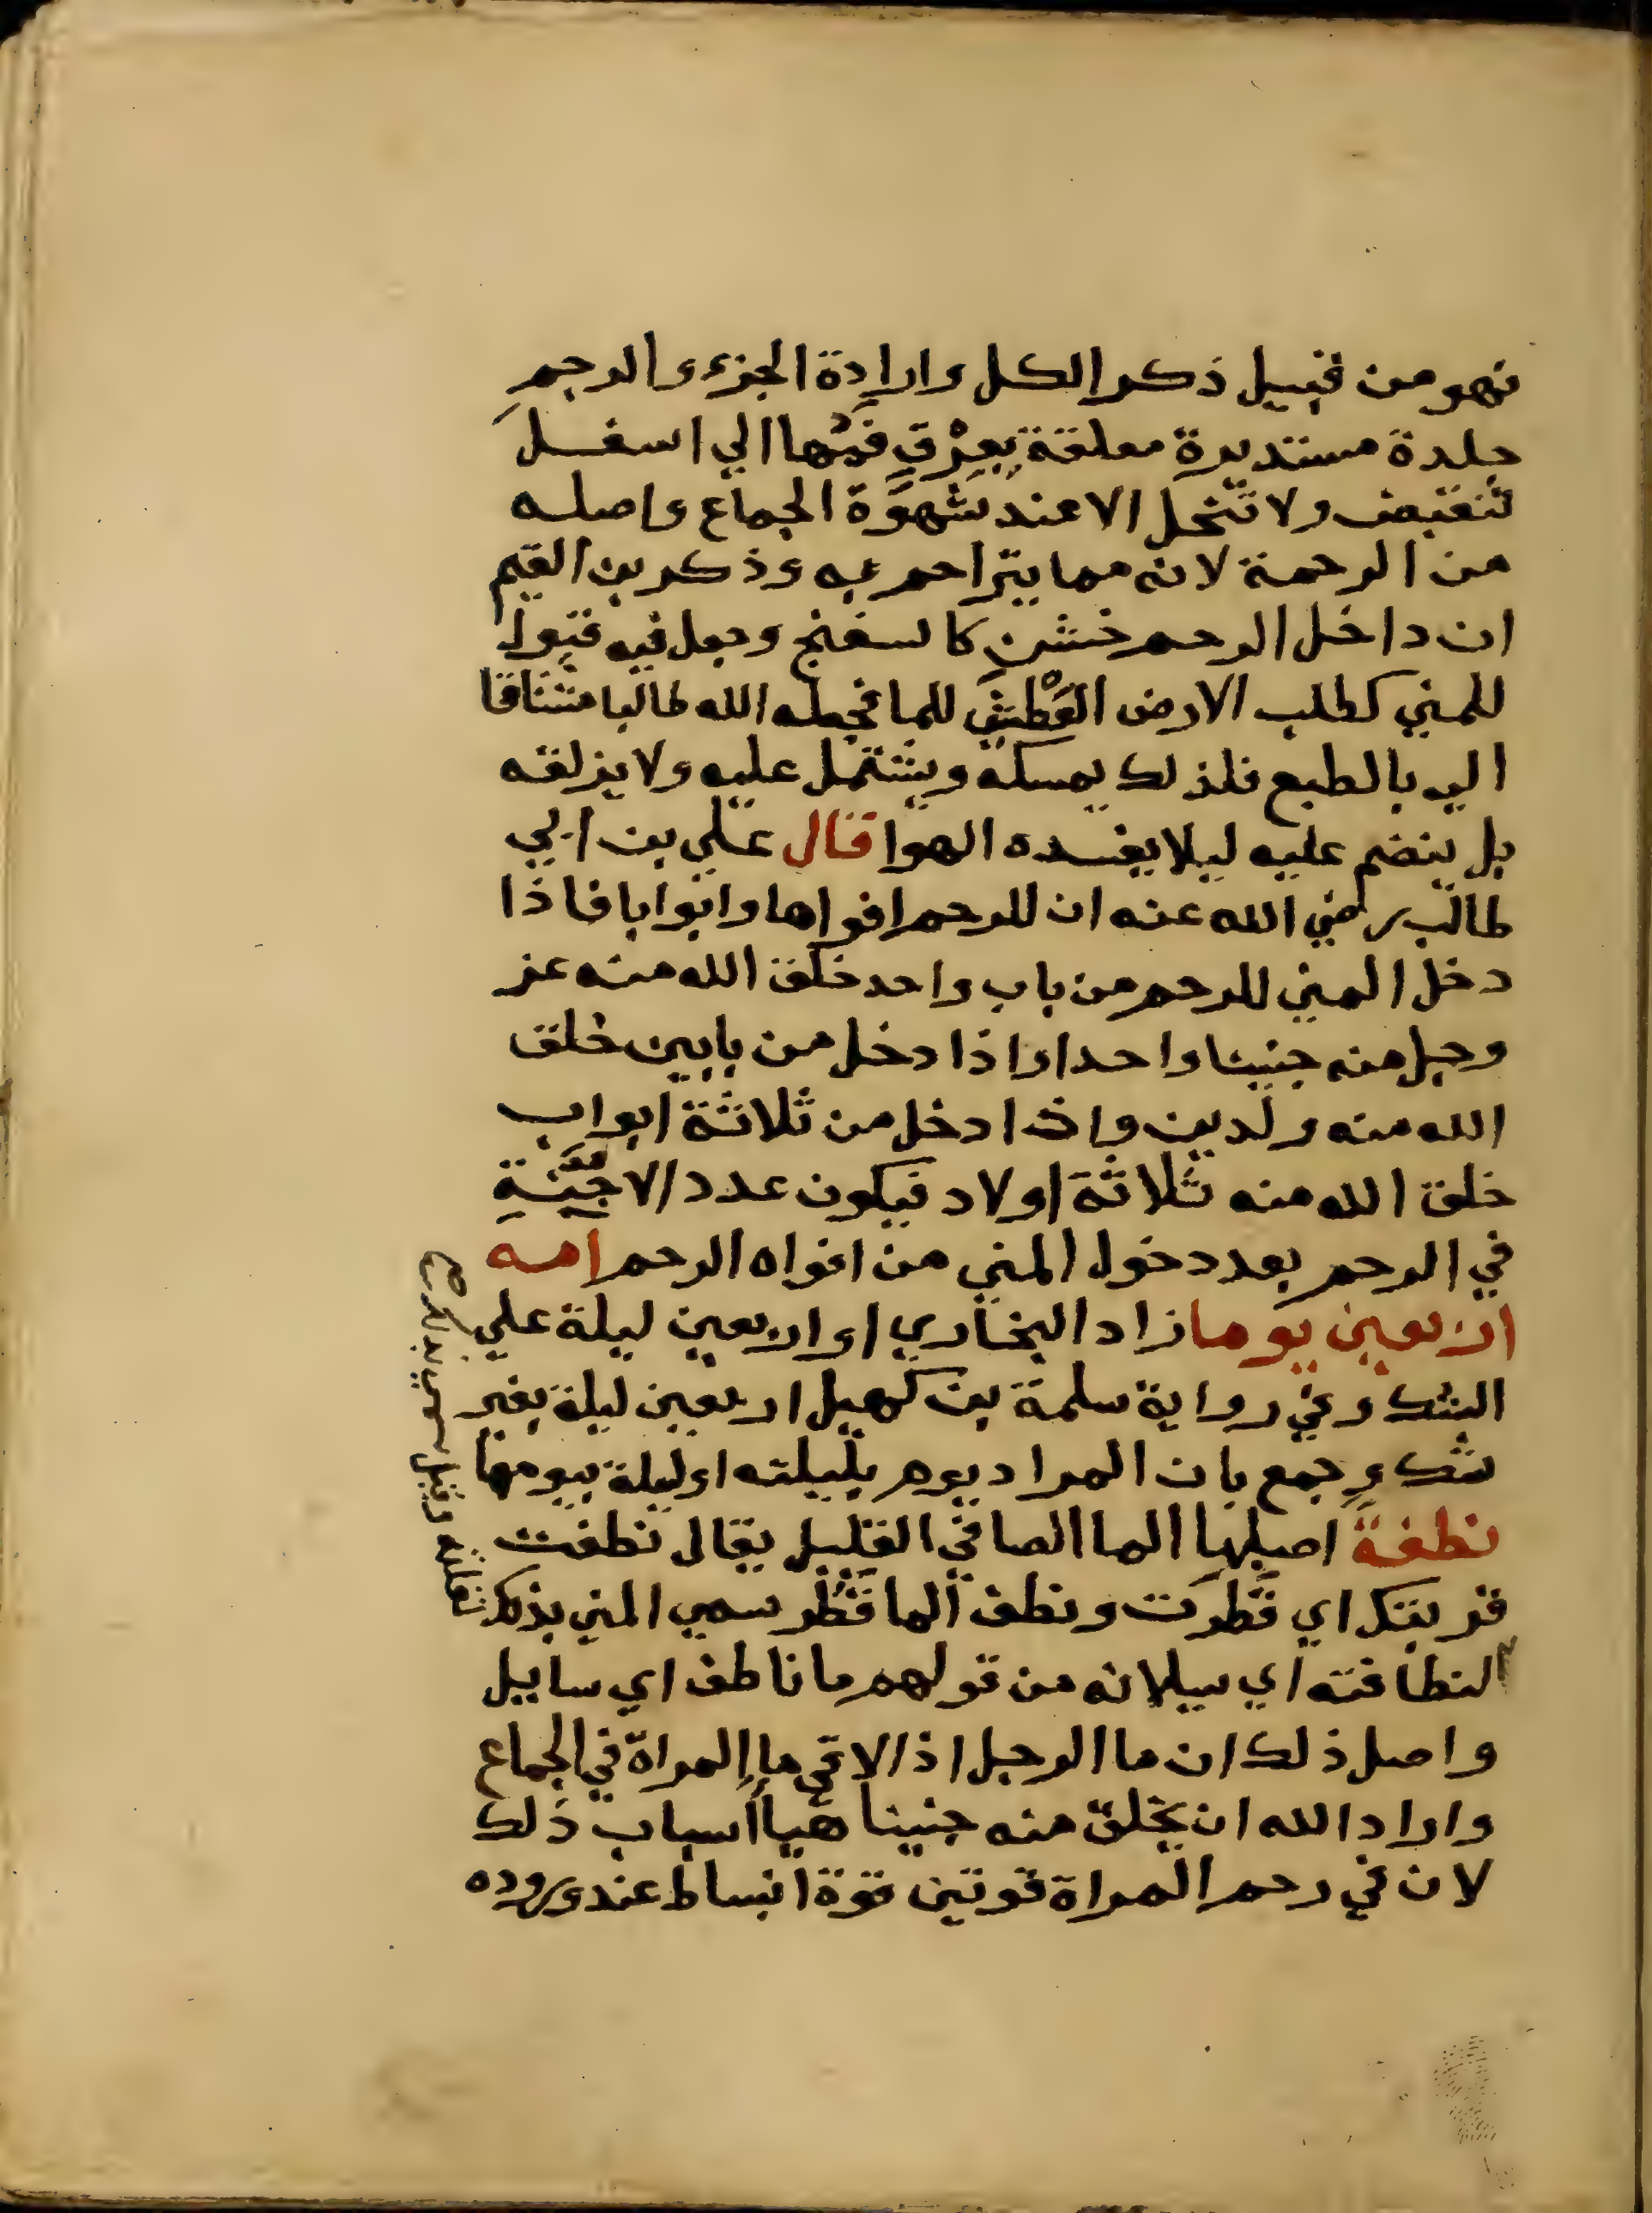 فهو من قبيل ذكر الكل وارادة الجزء والرحم
جلدة مستديرة معلقة بعرق فمها الي اسفل
تنقبض ولا تنحل الا عند شهوة الجماع واصله
من الرحمة لانه مما يتراحم به وذكر بن القيم
ان داخل الرحم خشن كالسفنج وجعل فيه قبولا
للمني كطلب الارض العطش للما فجعله الله طالبا مشتاقا
اليه بالطبع فلذلك يمسكه ويشتمل عليه ولا يزلقه
بل ينضم عليه ليلا يفسده الهوا قال علي بن ابي
طالب رضي الله عنه ان للرحم افواها وابوابا فاذا
دخل المني للرحم من باب واحد خلق الله منه عز
وجل منه جنينا واحدا واذا دخل من بابين خلق
الله منه ولدين واذا دخل من ثلاثة ابواب
خلق الله منه ثلاثة اولاد فيكون عدد الاجنة
في الرحم بعدد دخول المني من افواه الرحم امه
اربعين يوما زاد البخاري او اربعين ليلة علي
الشك وفي رواية سلمة بن كهيل اربعين ليلة بغير
شك وجمع بان المراد يوم بليلته او ليلة بيومها
نطفة اصلها الما الصافي القليل يقال نطفت
قربتك اي قطرت ونطف الما قطر سمي المني بذلك
لنطافته اي سيلانه من قولهم ما ناطف اي سايل
واصل ذلك ان ما الرجل اذا لاقي ما المراة في الجماع
واراد الله ان يخلق منه جنينا هيا اسباب ذلك
لان في رحم المراة قوتين قوة انبساط عند وروده
وقيل سمي بذلك